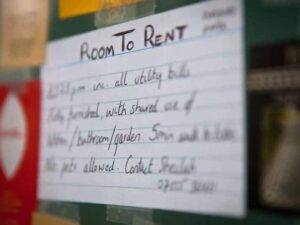 ROOM TO RENT
p.m inc. all utility bills
Fully furnished, with shared use of
kitchen/bathroom/garden. 5min walk to
No pets allowed. Contact Sheelah